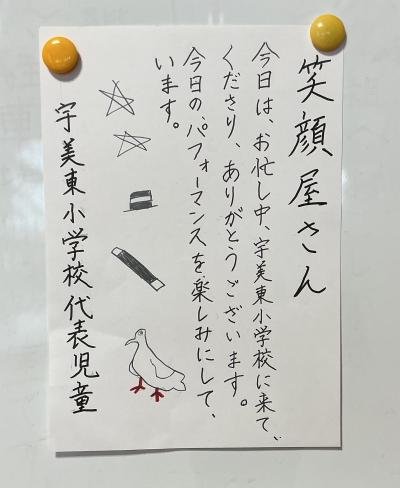 笑顔屋さん
今日は、お忙し中、宇美東小学校に来て、
くださり、ありがとうございます。
今日の、パフォーマンスを楽しみにして、
います。
宇美東小学校代表児童